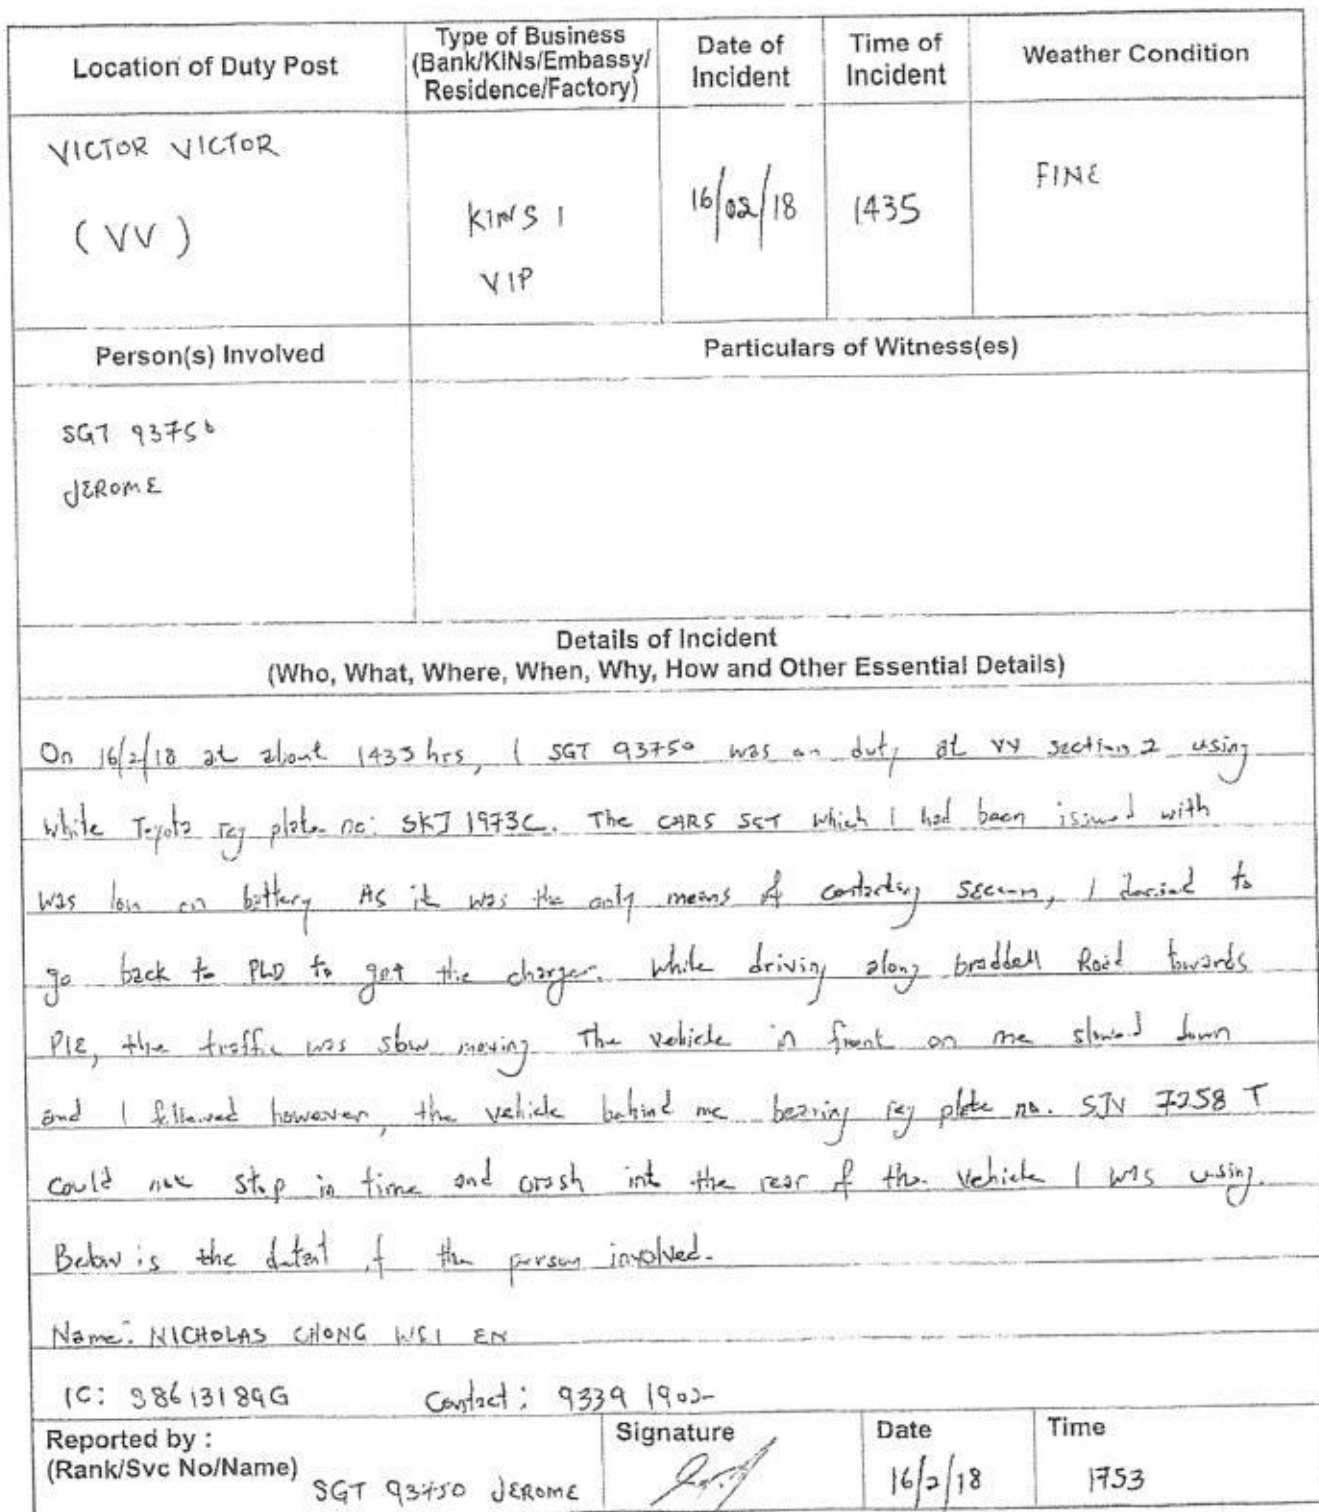 Location of Duty Post
Type of Business
(Bank/KINs/Embassy/
Residence/Factory)
Date of
Incident
Time of
Incident
Weather Condition
VICTOR VICTOR
(VV)
KINS 1
VIP
16/02/18
1435
FINE
Person(s) Involved
Particulars of Witness(es)
SGT 93750
JEROME
Details of Incident
(Who, What, Where, When, Why, How and Other Essential Details)
On 16/2/18 at about 1435 hrs, I SGT 93750 was on duty at VV section 2 using
white Toyota reg plate no: SKJ 1973C. The CARS SET which I had been issued with
was low on battery As it was the only means of contacting Secom, I decied to
go back to PLD to get the charger. While driving along braddell Road towards
PIE, the traffic was slow moving The vehicle in front on me slowed down
and I followed however, the vehicle behind me bearing reg plate no. SJV 7258 T
could not stop in time and crash into the rear of the vehicle I was using.
Below is the of the person involved.
Name: NICHOLAS CHONG WEI EN
IC: S8613189G Contact: 9339 1902
Reported by :
(Rank/Svc No/Name)
SGT 93750 JEROME
Signature
Date
16/2/18
Time
1753